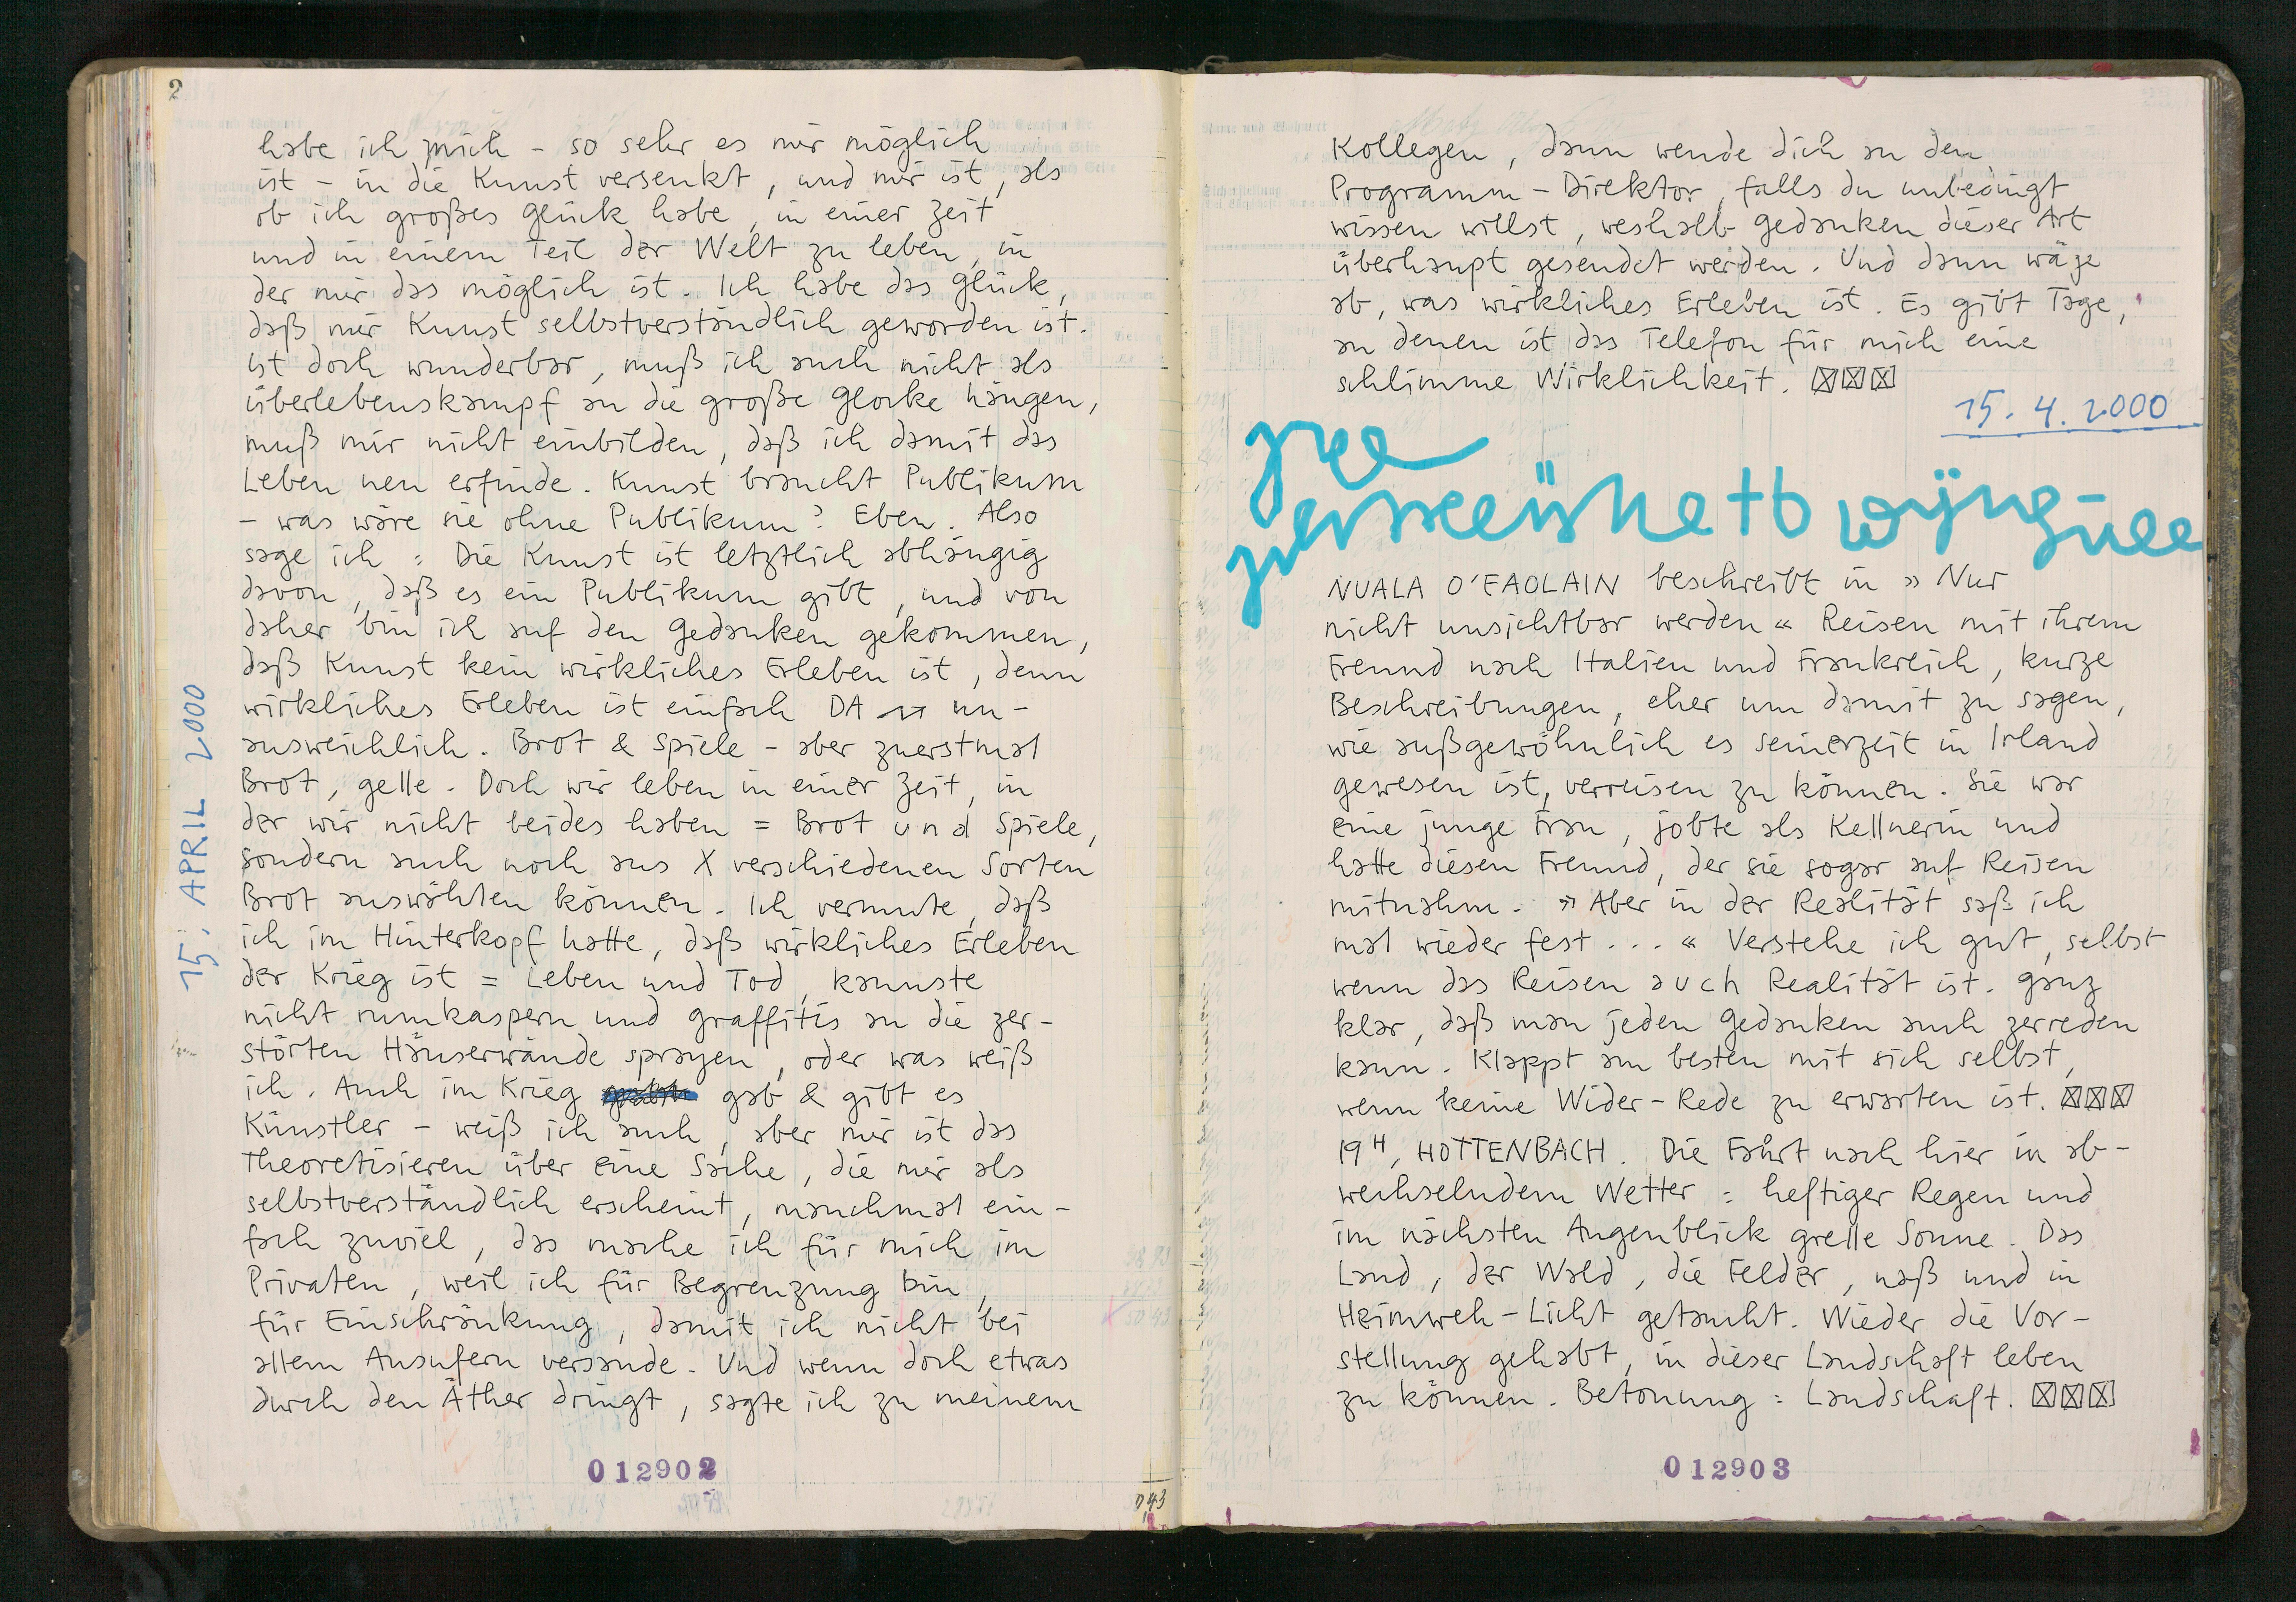 2
habe ich mich - so sehr es mir möglich
ist - in die Kunst versenkt, und mir ist, als
ob ich großes Glück habe, in einer Zeit
und in einem Teil der Welt zu leben, in
der mir das möglich ist. Ich habe das Glück,
daß mir Kunst selbstverständlich geworden ist.
ist doch wunderbar, muß ich auch nicht als
überlebenskampf an die große Glocke hängen,
muß mir nicht einbilden, daß ich damit das
Leben neu erfinde. Kunst braucht Publikum
- was wäre sie ohne Publikum? Eben. Also
sage ich : Die Kunst ist letztlich abhängig
davon, daß es ein Publikum gibt, und von
daher bin ich auf den Gedanken gekommen,
daß Kunst kein wirkliches Erleben ist, denn
wirkliches Erleben ist einfach DA un-
ausweichlich. Brot & Spiele - aber zuerstmal
Brot, gelle. Doch wir leben in einer Zeit, in
der wir nicht beides haben = Brot und Spiele,
sondern auch noch aus X verschiedenen Sorten
Brot auswählen können. Ich vermute, daß
ich im Hinterkopf hatte, daß wirkliches Erleben
der Krieg ist = Leben und Tod, kannste
nicht rumkaspern und Graffitis an die zer-
störten Häuserwände sprayen, oder was weiß
ich. Auch im Krieg gab & gibt es
Künstler - weiß ich auch, aber mir ist das
Theoretisieren über eine Sache, die mir als
selbstverständlich erscheint, manchmal ein-
fach zuviel, das mache ich für mich im
Privaten, weil ich für Begrenzung bin,
für Einschränkung, damit ich nicht bei
allem Ausufern versande. Und wenn doch etwas
durch den Äther dringt, sagte ich zu meinem
15. APRIL 2000
012902
Kollegen, dann wende dich an den
Programm-Direktor, falls du unbedingt
wissen willst, weshalb Gedanken dieser Art
überhaupt gesendet werden. Und dann wäge
ab, was wirkliches Erleben ist. Es gibt Tage,
an denen ist das Telefon für mich eine
schlimme Wirklichkeit.
15.4.2000
NUALA O'FAOLAIN beschreibt in »Nur
nicht unsichtbar werden« Reisen mit ihrem
Freund nach Italien und Frankreich, kurze
Beschreibungen, eher um damit zu sagen,
wie außgewöhnlich es seinerzeit in Irland
gewesen ist, verreisen zu können. Sie war
eine junge Frau, jobte als Kellnerin und
hatte diesen Freund, der sie sogar auf Reisen
mitnahm. »Aber in der Realität saß ich
mal wieder fest...« Verstehe ich gut, selbst
wenn das Reisen auch Realität ist. Ganz
klar, daß man jeden Gedanken auch zerreden
kann. Klappt am besten mit sich selbst,
wenn keine Wider-Rede zu erwarten ist.
19H, HOTTENBACH. Die Fahrt nach hier in ab-
wechselndem Wetter : heftiger Regen und
im nächsten Augenblick grelle Sonne. Das
Land, der Wald, die Felder, naß und in
Heimweh-Licht getaucht. Wieder die Vor-
stellung gehabt, in dieser Landschaft leben
zu können. Betonung : Landschaft.
012903